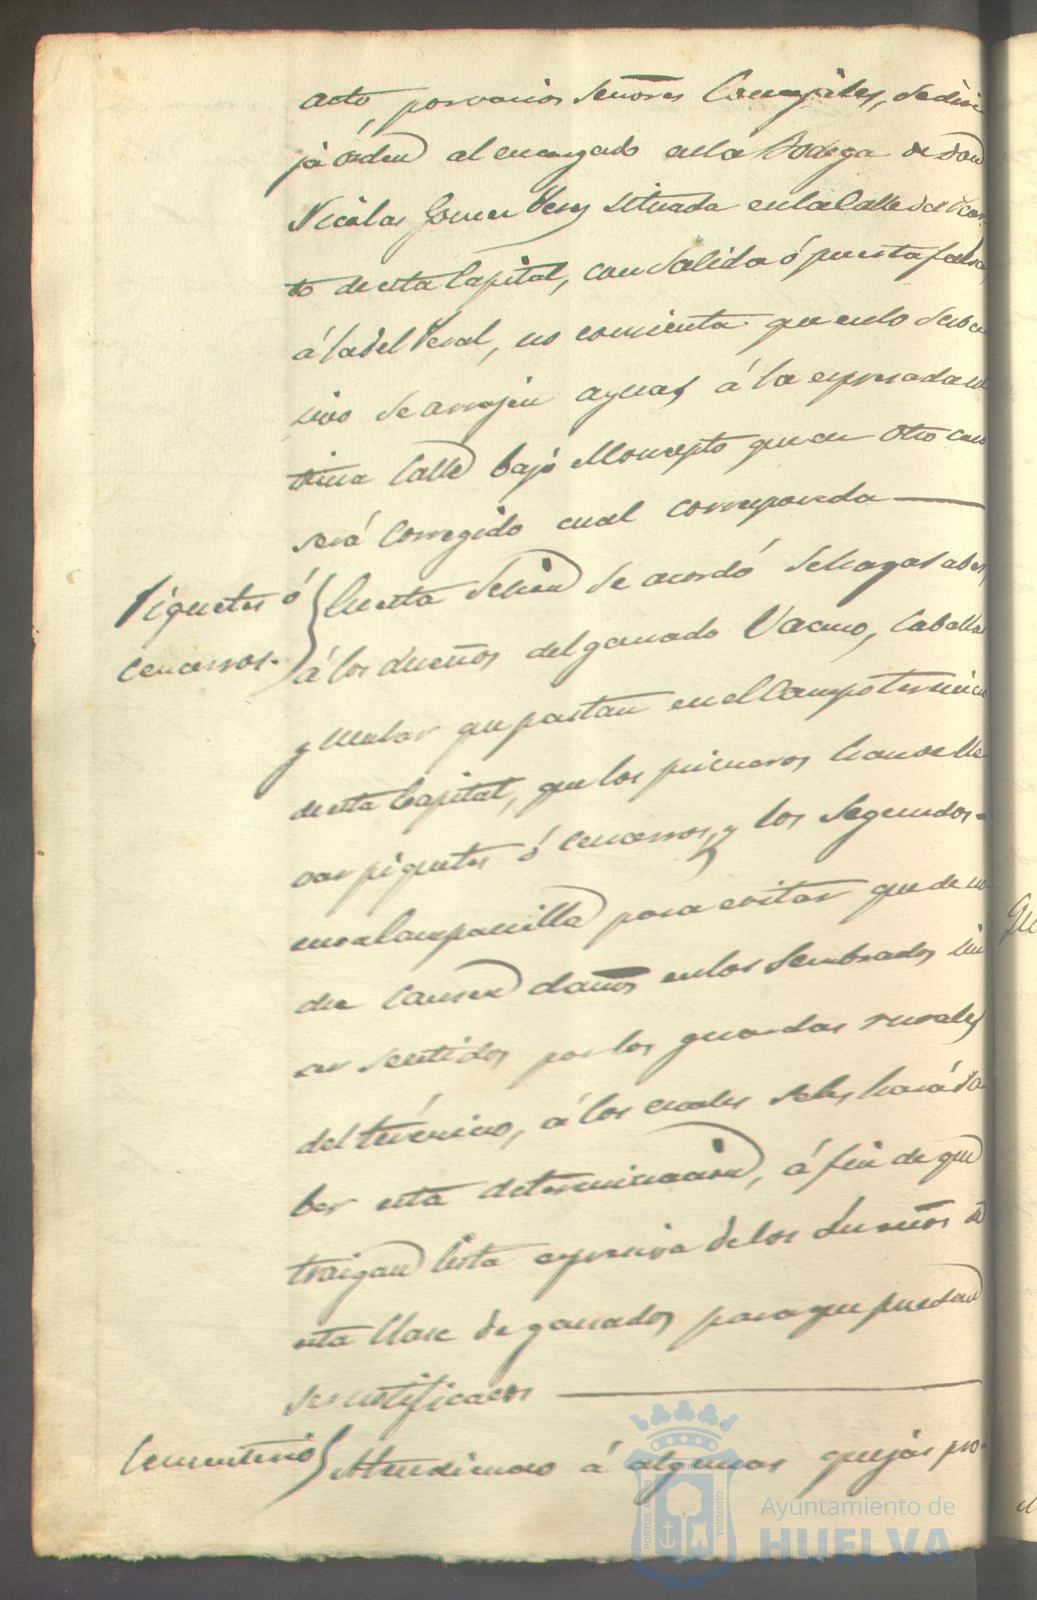 acto, por varios Señores Concejales, se diri
ja órden al encargado en la Bodega de Don
Nicolas Gomez situada en la Calle del
to de esta Capital, con salida ó puerta falsa,
á la del Peral, no consienta que en lo subce
sivo se arrojen aguas á la espresada
Calle bajo el concepto que en otro caso
será corregido cual corresponda
Piquetes ó
cencerros.
En esta Sesion se acordó se haga saber,
á los dueños del ganado Vacuno, Caballar
y Mular que pastan en el Campo término
de esta Capital, que los primeros han de lle
var piquetes ó cencerros, y los segundos
una Campanilla para evitar que de no
che causen daños en los Sembrados sin
ser sentidos por los guardas rurales
del término, á los cuales se les hará sa
ber esta determinacion, á fin de que
traigan lista espresiva de los dueños de
esta clase de ganados, para que puedan
ser notificados
Cementerio
Atendiendo á algunas quejas pro-
PORTUS MARIS
CUSTODIA
Ayuntamiento de
HUELVA